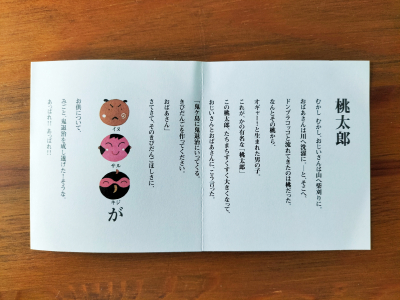 桃太郎
むかし、むかし、おじいさんは山へ柴刈りに、
おばあさんは川へ洗濯に、…と、そこへ、
ドンブラコッコと流れてきたのは桃だった。
なんとその桃から、
オギャーーーと生まれた男の子。
これが、かの有名な「桃太郎」
この桃太郎、たちまちすくすく大きくなって、
おじいさんとおばあさんに、こう言った。
「鬼ヶ島に鬼退治にいってくる。
きびだんごを作ってください、
おばあさん」
さてさて、そのきびだんごほしさに、
イヌ
サル
キジ
が
お供について、
みごと、鬼退治を成し遂げた！そうな。
あっぱれ!! あっぱれ!!